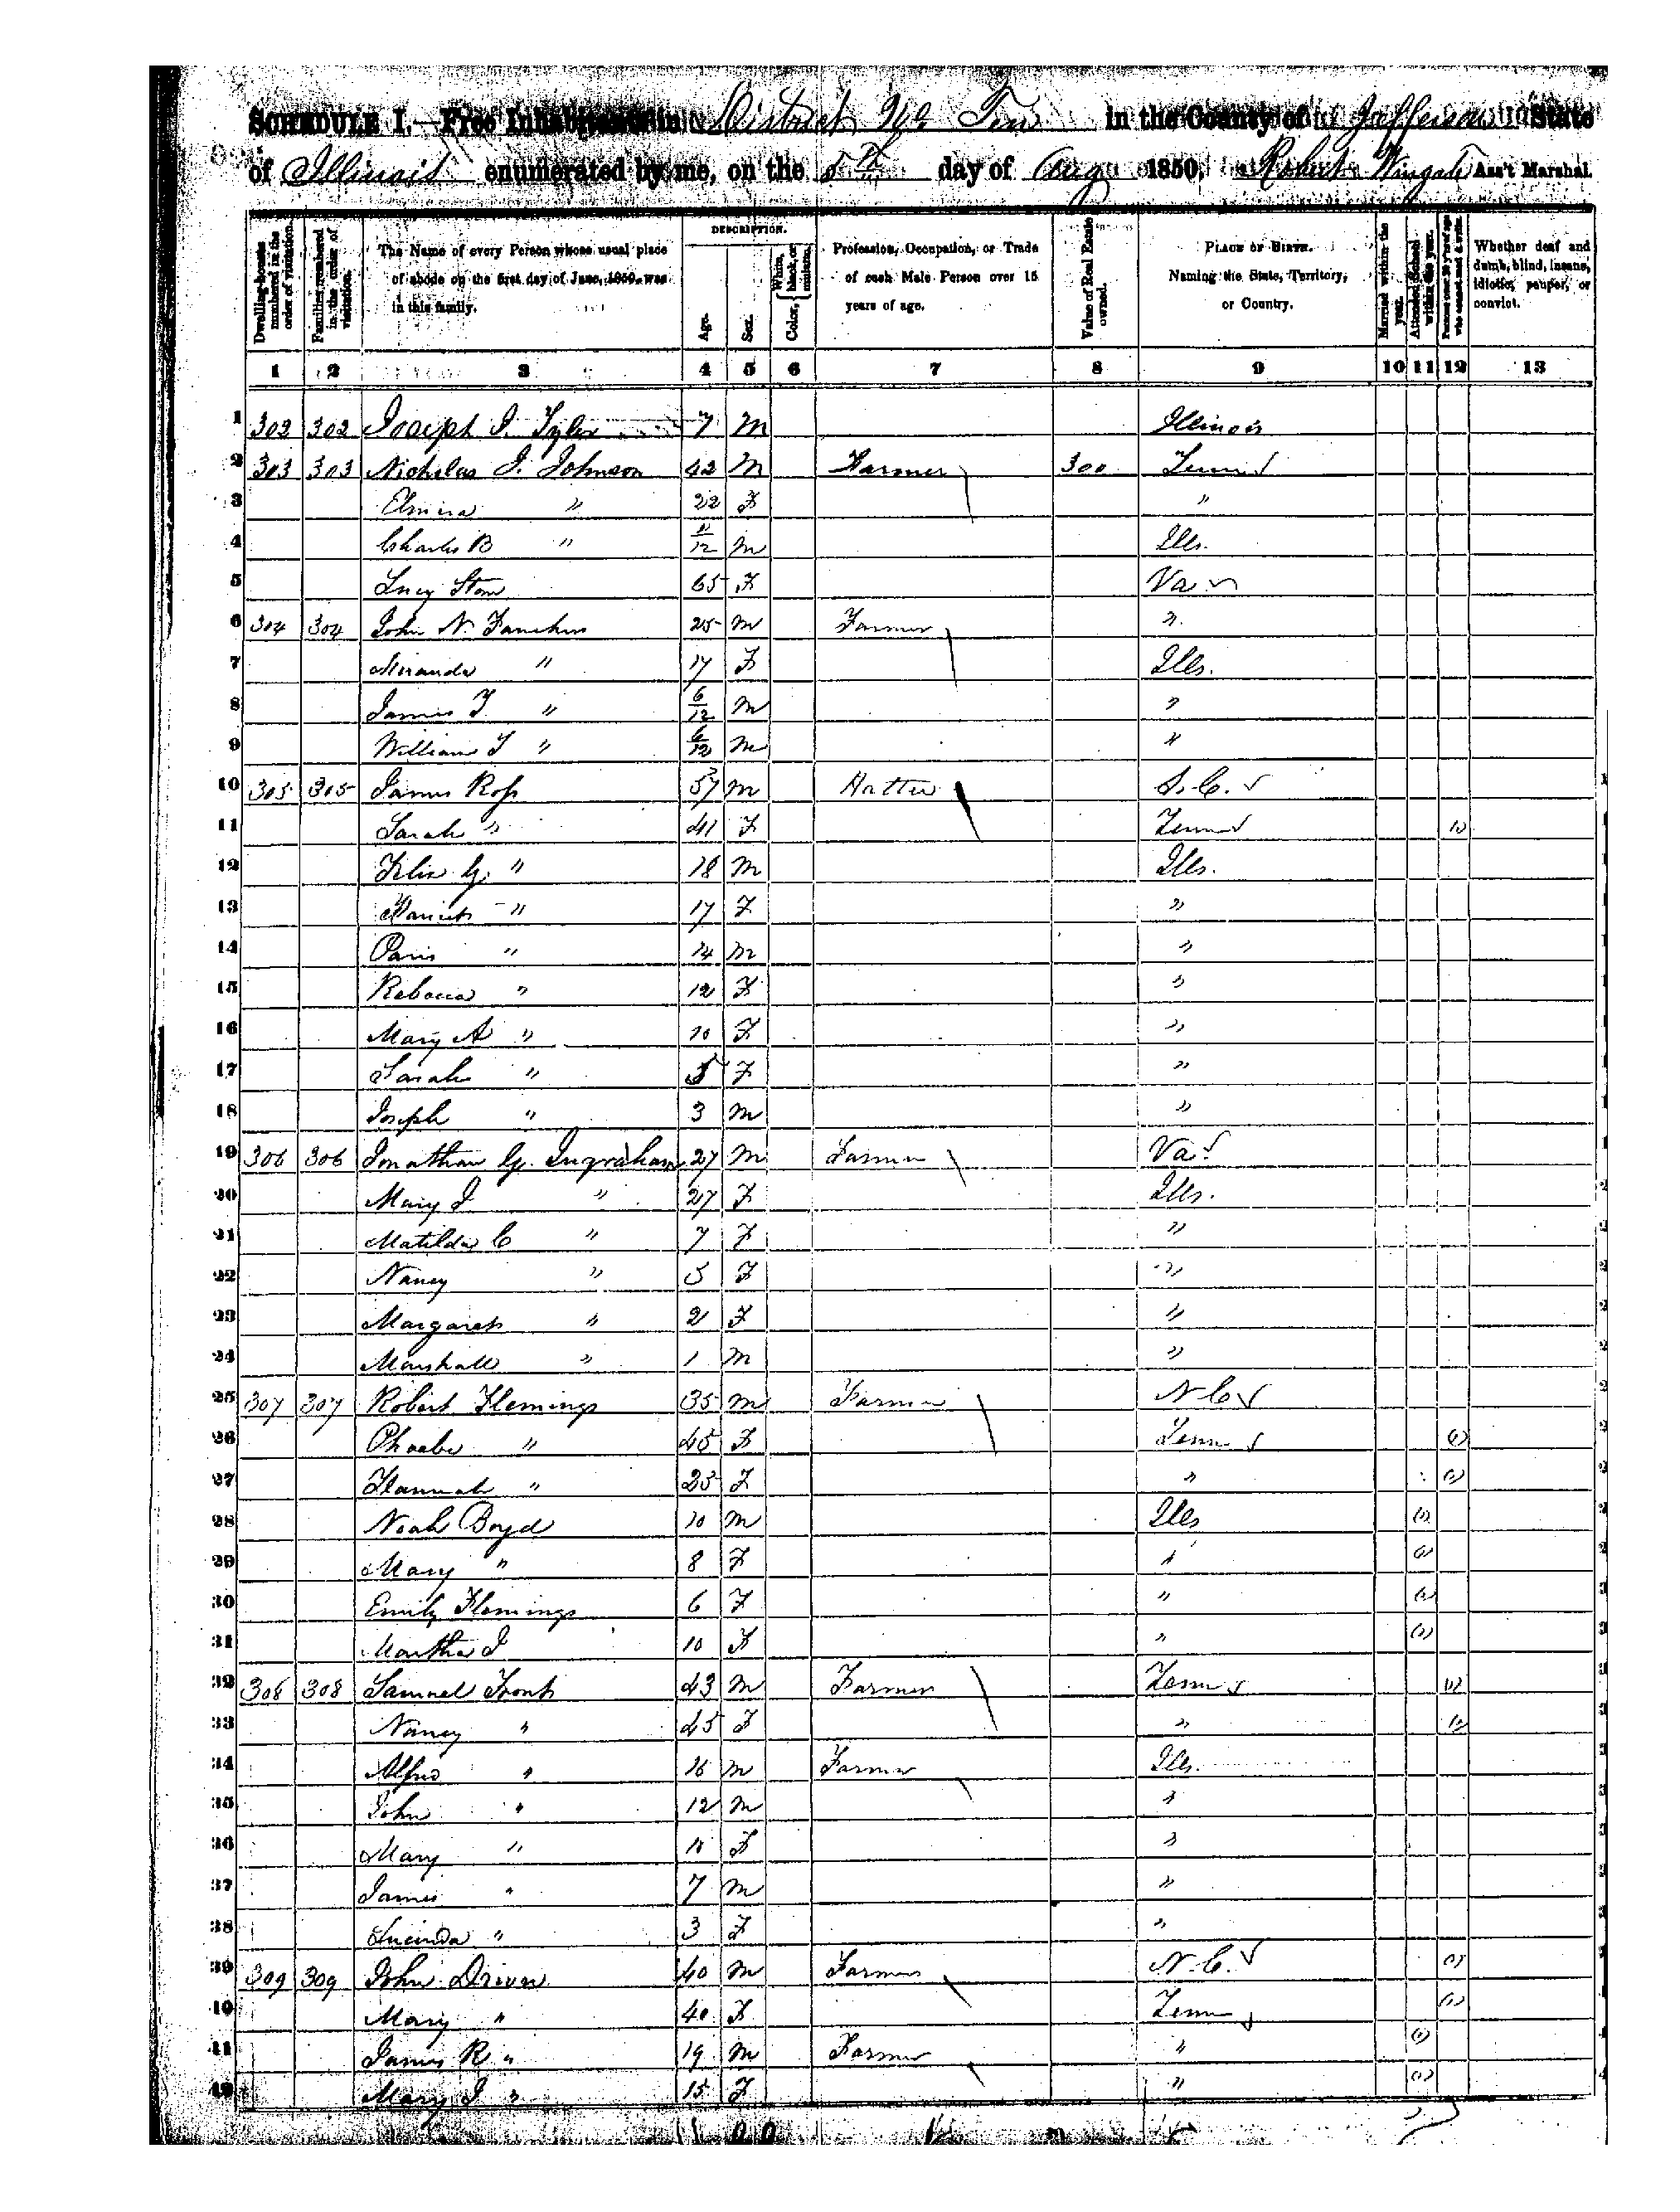 SCHEDULE I.—Free Inhabitants in District No Ten in the County of Jefferson State
of Illinois enumerated by me, on the 5th day of Aug 1850. Robert Wingate Ass't Marshal.
Dwelling-houses numbered in the order of visitation.
Families numbered in the order of visitation.
The Name of every Person whose usual place of abode on the first day of June, 1850, was in this family.
DESCRIPTION.
Age.
Sex.
Color, { White, black, or mulatto.
Profession, Occupation, or Trade of each Male Person over 15 years of age.
Value of Real Estate owned.
PLACE OF BIRTH. Naming the State, Territory, or Country.
Married within the year.
Attended School within the year.
Persons over 20 y'rs of age who cannot read & write.
Whether deaf and dumb, blind, insane, idiotic, pauper, or convict.
1 2 3 4 5 6 7 8 9 10 11 12 13
1 302 302 Joseph J. Tyler 7 M Illinois
2 303 303 Nicholas J. Johnson 42 M Farmer 300 Tenn
3 Elmira " 22 F "
4 Charles B " 11/12 M Ills.
5 Lucy Stow 65 F Va
6 304 304 John N. 25 M Farmer "
7 Miranda " 17 F Ills.
8 James T " 6/12 M "
9 William T " 6/12 M "
10 305 305 James Ross 57 M Hatter S.C.
11 Sarah " 41 F Tenn (1)
12 Felix G. " 18 M Ills.
13 " 17 F "
14 Paris " 14 M "
15 Rebecca " 12 F "
16 Mary A " 10 F "
17 Sarah " 5 F "
18 Joseph " 3 M "
19 306 306 Jonathan G. Ingraham 27 M Farmer Va
20 Mary J " 27 F Ills.
21 Matilda C " 7 F "
22 Nancy " 5 F "
23 Margaret " 2 F "
24 Marshall " 1 M "
25 307 307 Robert Flemings 35 M Farmer N C
26 Phoebe " 45 F Tenn (1)
27 Hannah " 25 F " (1)
28 Noah Boyd 10 M Ills (1)
29 Mary " 8 F " (1)
30 Emily Flemings 6 F " (1)
31 Martha J 10 F " (1)
32 308 308 Samuel 43 M Farmer Tenn (1)
33 Nancy " 45 F " (1)
34 Alfred " 16 M Farmer Ills.
35 John " 12 M "
36 Mary " 10 F "
37 James " 7 M "
38 Lucinda " 3 F "
39 309 309 John Driver 40 M Farmer N.C. (1)
40 Mary " 40 F Tenn (1)
41 James R " 19 M Farmer " (1)
42 Mary J " 15 F " (1)